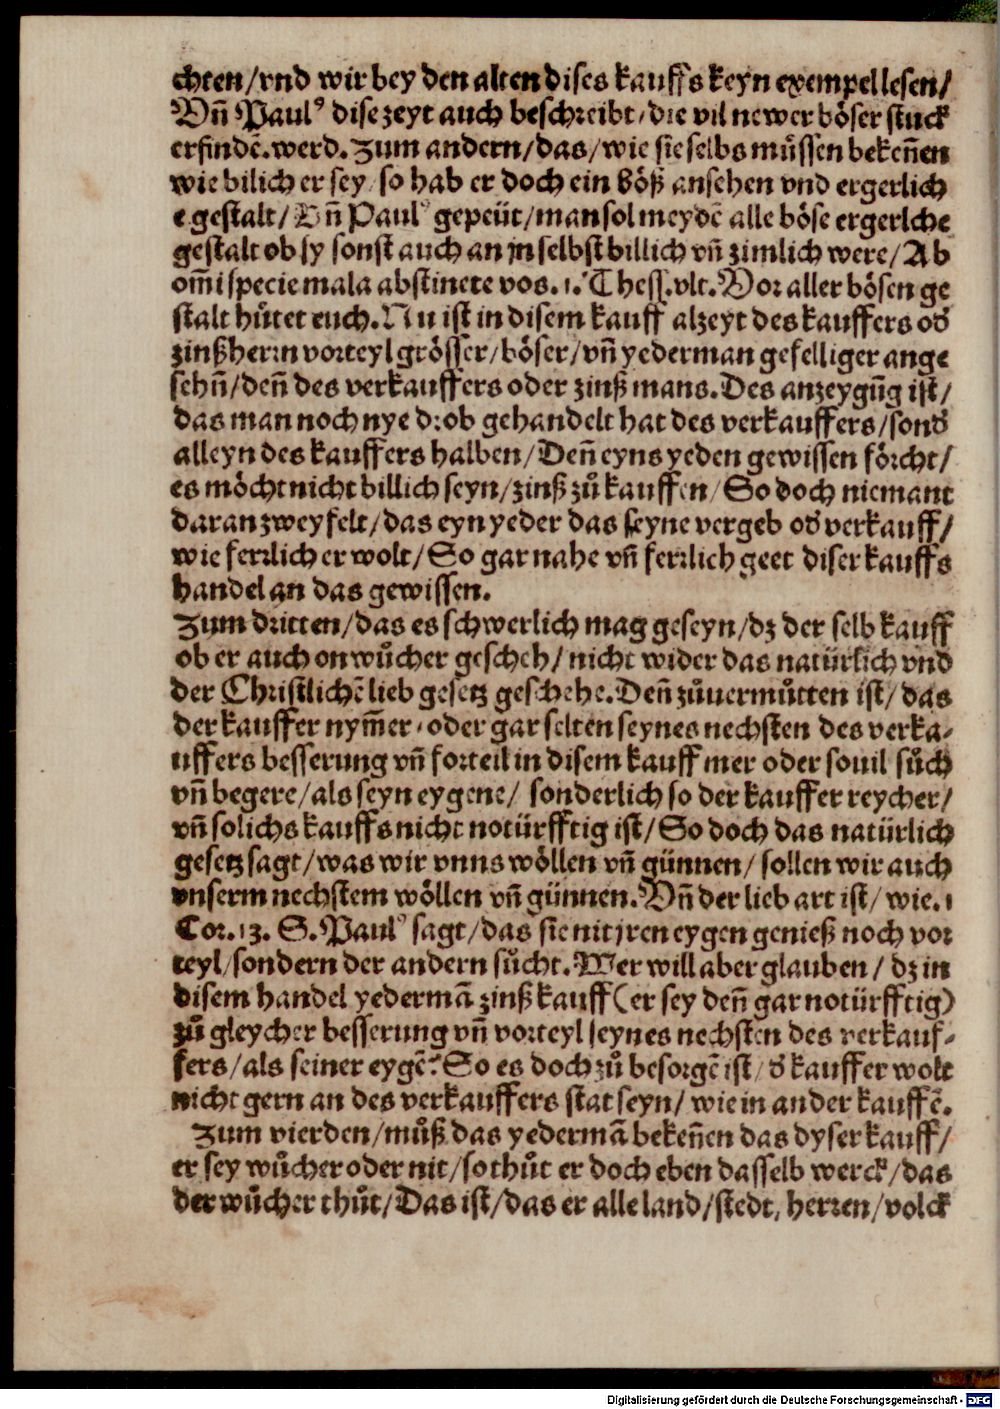 chten/vnd wir bey den alten dises kauffs keyn exempel lesen/
Vñ Paul⁹ dise zeyt auch beschreibt/die vil newer böser stuck
erfindẽ.werd.Zum andern/das/wie sie selbs müssen bekeñen
wie bilich er sey/so hab er doch ein böß ansehen vnd ergerlich
e gestalt/Vñ Paul⁹ gepeüt/man sol meydẽ alle böse ergerlche
gestalt ob sy sonst auch an jn selbst billich vñ zimlich were/Ab
om̃i specie mala abstinete vos.1.Thess.vlt.Vor aller bösen ge
stalt hůtet euch.Nu ist in disem kauff alzeyt des kauffers od̕
zinßherrn vorteyl grösser/böser/vñ yederman gefelliger ange
sehñ/deñ des verkauffers oder zinß mans.Des anzeygũg ist/
das man noch nye drob gehandelt hat des verkauffers/sond̕
alleyn des kauffers halben/Deñ eyns yeden gewissen förcht/
es möcht nicht billich seyn/zinß zů kauffen/So doch niemant
daran zweyfelt/das eyn yeder das seyne vergeb od̕ verkauff/
wie ferrlich er wolt/So gar nahe vñ ferrlich geet diser kauffs
handel an das gewissen.
Zum dritten/das es schwerlich mag geseyn/dz der selb kauff
ob er auch on wůcher gescheh/nicht wider das natürlich vnd
der Christlichẽ lieb gesetz geschehe.Deñ zůuermůtten ist/das
der kauffer nym̃er/oder gar selten seynes nechsten des verka-
uffers besserung vñ forteil in disem kauff mer oder souil sůch
vñ begere/als seyn eygene/ sonderlich so der kauffer reycher/
vñ solichs kauffs nicht notürfftig ist/So doch das natürlich
gesetz sagt/was wir vnns wöllen vñ günnen/sollen wir auch
vnserm nechstem wöllen vñ günnen.Vñ der lieb art ist/wie.1
Cor.13. S.Paul⁹ sagt/das sie nit jren eygen genieß noch vor
teyl/sondern der andern sůcht.Wer will aber glauben/dz in
disem handel yedermã zinß kauff(er sey deñ gar notürfftig)
zů gleycher besserung vñ vorteyl seynes nechsten des verkauf-
fers/als seiner eygẽ?So es doch zů besorgẽ ist/d̕ kauffer wolt
nicht gern an des verkauffers stat seyn/wie in ander kauffẽ.
Zum vierden/můß das yedermã bekeñen das dyser kauff/
er sey wůcher oder nit/so thůt er doch eben dasselb werck/das
der wůcher thůt/Das ist/das er alle land/stedt, herren/volck
Digitalisierung gefördert durch die Deutsche Forschungsgemeinschaft - DFG